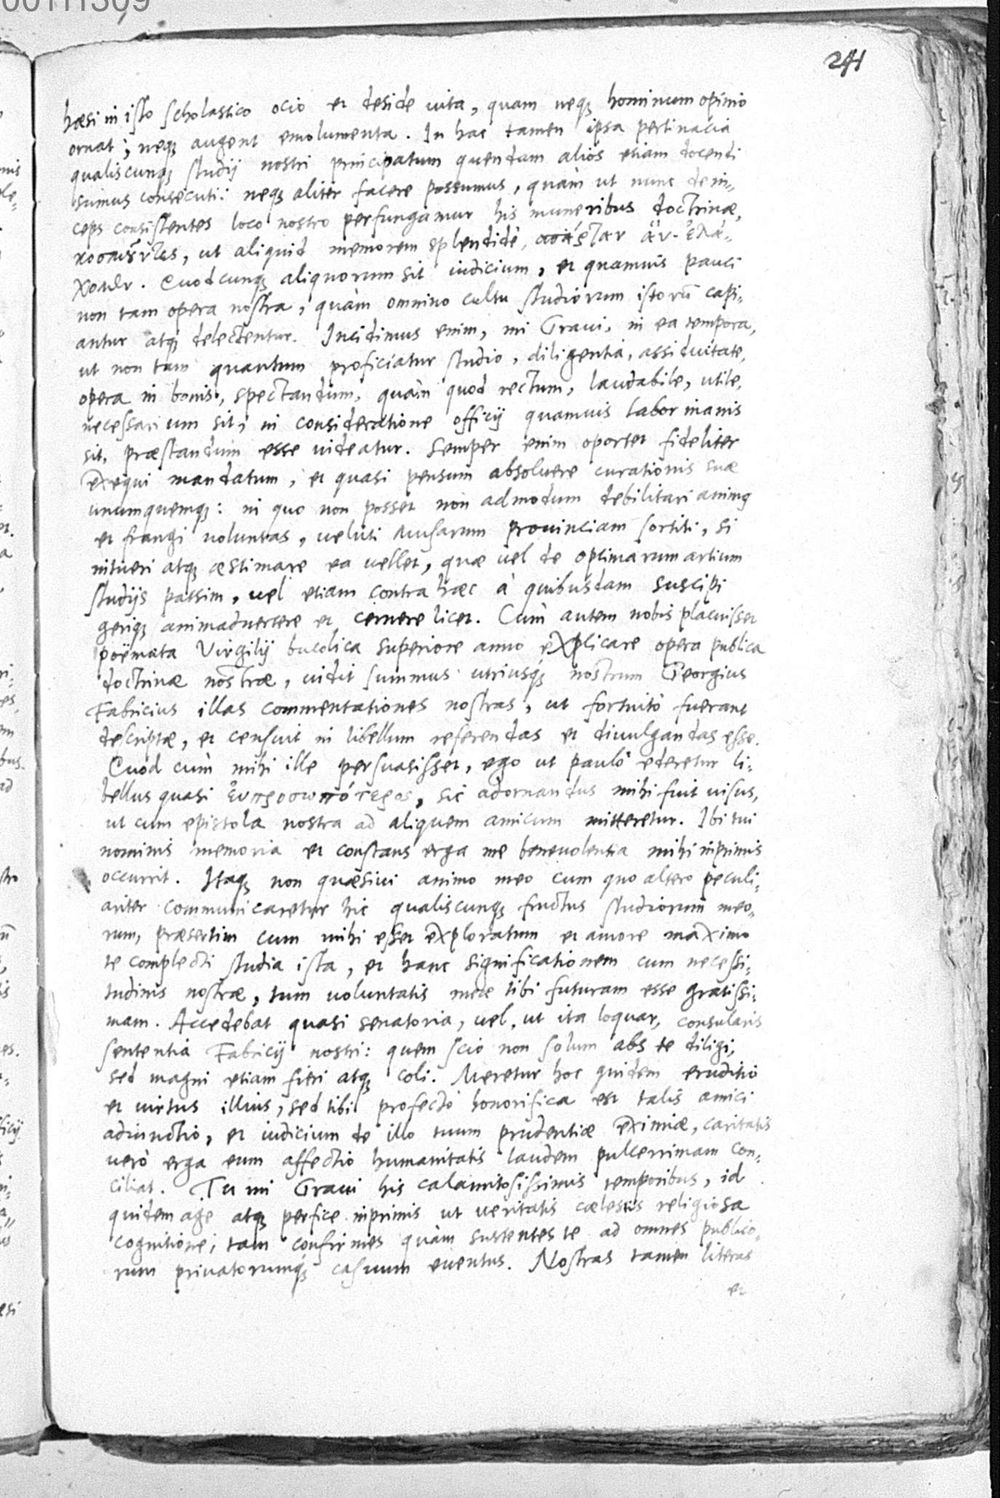 241
hæsi in isto scholastico ocio et deside vita, quam neq; hominum opinio
ornat; neq; augent emolumenta. In hac tamen ipsa pertinacia
qualiscunq; studij nostri principatum quendam alios etiam docendi
sumus consecuti: neq; aliter facere possumus, quàm ut nunc dein-
ceps consistentes loco nostro perfungamur his muneribus doctrinæ,
ut aliquid memorem splendidè,
Quodcunq; aliquorum sit iudicium, et quamuis pauci
non tam opera nostra, quàm omnino cultu studiorum istorũ capi-
antur atq; delectentur. Incidimus enim, mi Gravi, in ea tempora,
ut non tam quantum proficiatur studio, diligentia, assiduitate,
opera in bonis, spectandum, quàm quod rectum, laudabile, utile,
necessarium sit; in consideratione officij quamuis labor inanis
sit, præstandum esse videatur. Semper enim oportet fideliter
exequi mandatum, et quasi pensum absolvere curationis suæ
unumquemq;: in quo non posset non admodum debilitari animg
et frangi voluntas, veluti Musarum provinciam sortiti, si
intueri atq; æstimare ea vellet, quæ vel de optimarum artium
studijs passim, vel etiam contra hæc à quibusdam suscipi
geriq; animadvertere et cernere licet. Cùm autem nobis placuisset
poëmata Virgilij bucolica superiore anno explicare opera publica
doctrinæ nostræ, vidit summus utriusq; nostrum Georgius
Fabricius illas commentationes nostras, ut fortuitò fuerant
descriptæ, et censuit in libellum referendas et divulgandas esse.
Quod cùm mihi ille persuasisset, ego ut paulò ederetur li-
bellus quasi εὐπροσωπότερος, sic adornandus mihi fuit visus,
ut cum epistola nostra ad aliquem amicum mitteretur. Ibi tui
nominis memoria et constans erga me benevolentia mihi inprimis
occurrit. Itaq; non quæsivi animo meo cum quo altero peculi-
ariter communicaretur hic qualiscunq; fructus studiorum meo-
rum, præsertim cum mihi esset exploratum et amore maximo
te complecti studia ista, et hanc significationem cum necessi-
tudinis nostræ, tum voluntatis meæ tibi futuram esse gratissi-
mam. Accedebat quasi senatoria, vel, ut ita loquar, consularis
sententia Fabricij nostri: quem scio non solum abs te diligi,
sed magni etiam fieri atq; coli. Meretur hoc quidem eruditio
et virtus illius, sed tibi profectò honorifica est talis amici
adiunctio, et iudicium de illo tuum prudentiæ eximiæ, caritatis
verò erga eum affectio humanitatis laudem pulcerrimam con-
ciliat. Tu mi Gravi his calamitosissimis temporibus, id
quidem age atq; perfice inprimis ut veritatis cælestis religiosa
cognitione; tam confirmes quàm sustentes te ad omnes publico-
rum privatorumq; casuum eventus. Nostras tamen literas
et